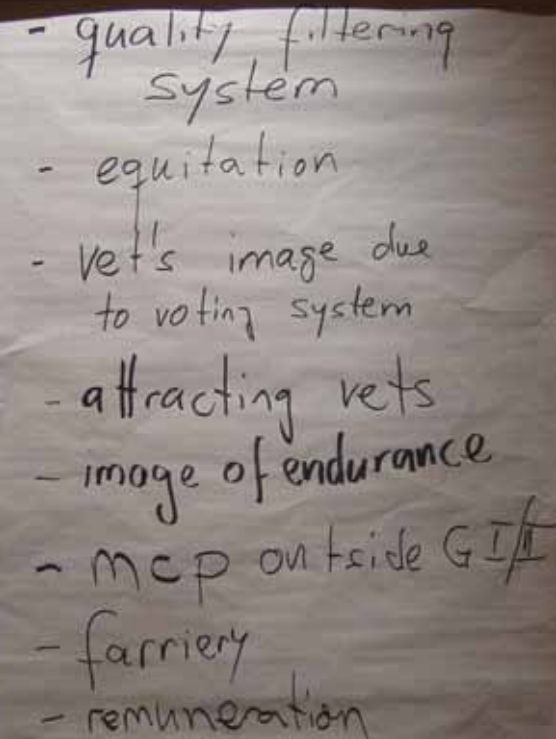 - quality filtering
system
- equitation
- vet's image due
to voting system
- attracting vets
- image of endurance
- mcp outside GI/II
- farriery
- remuneration